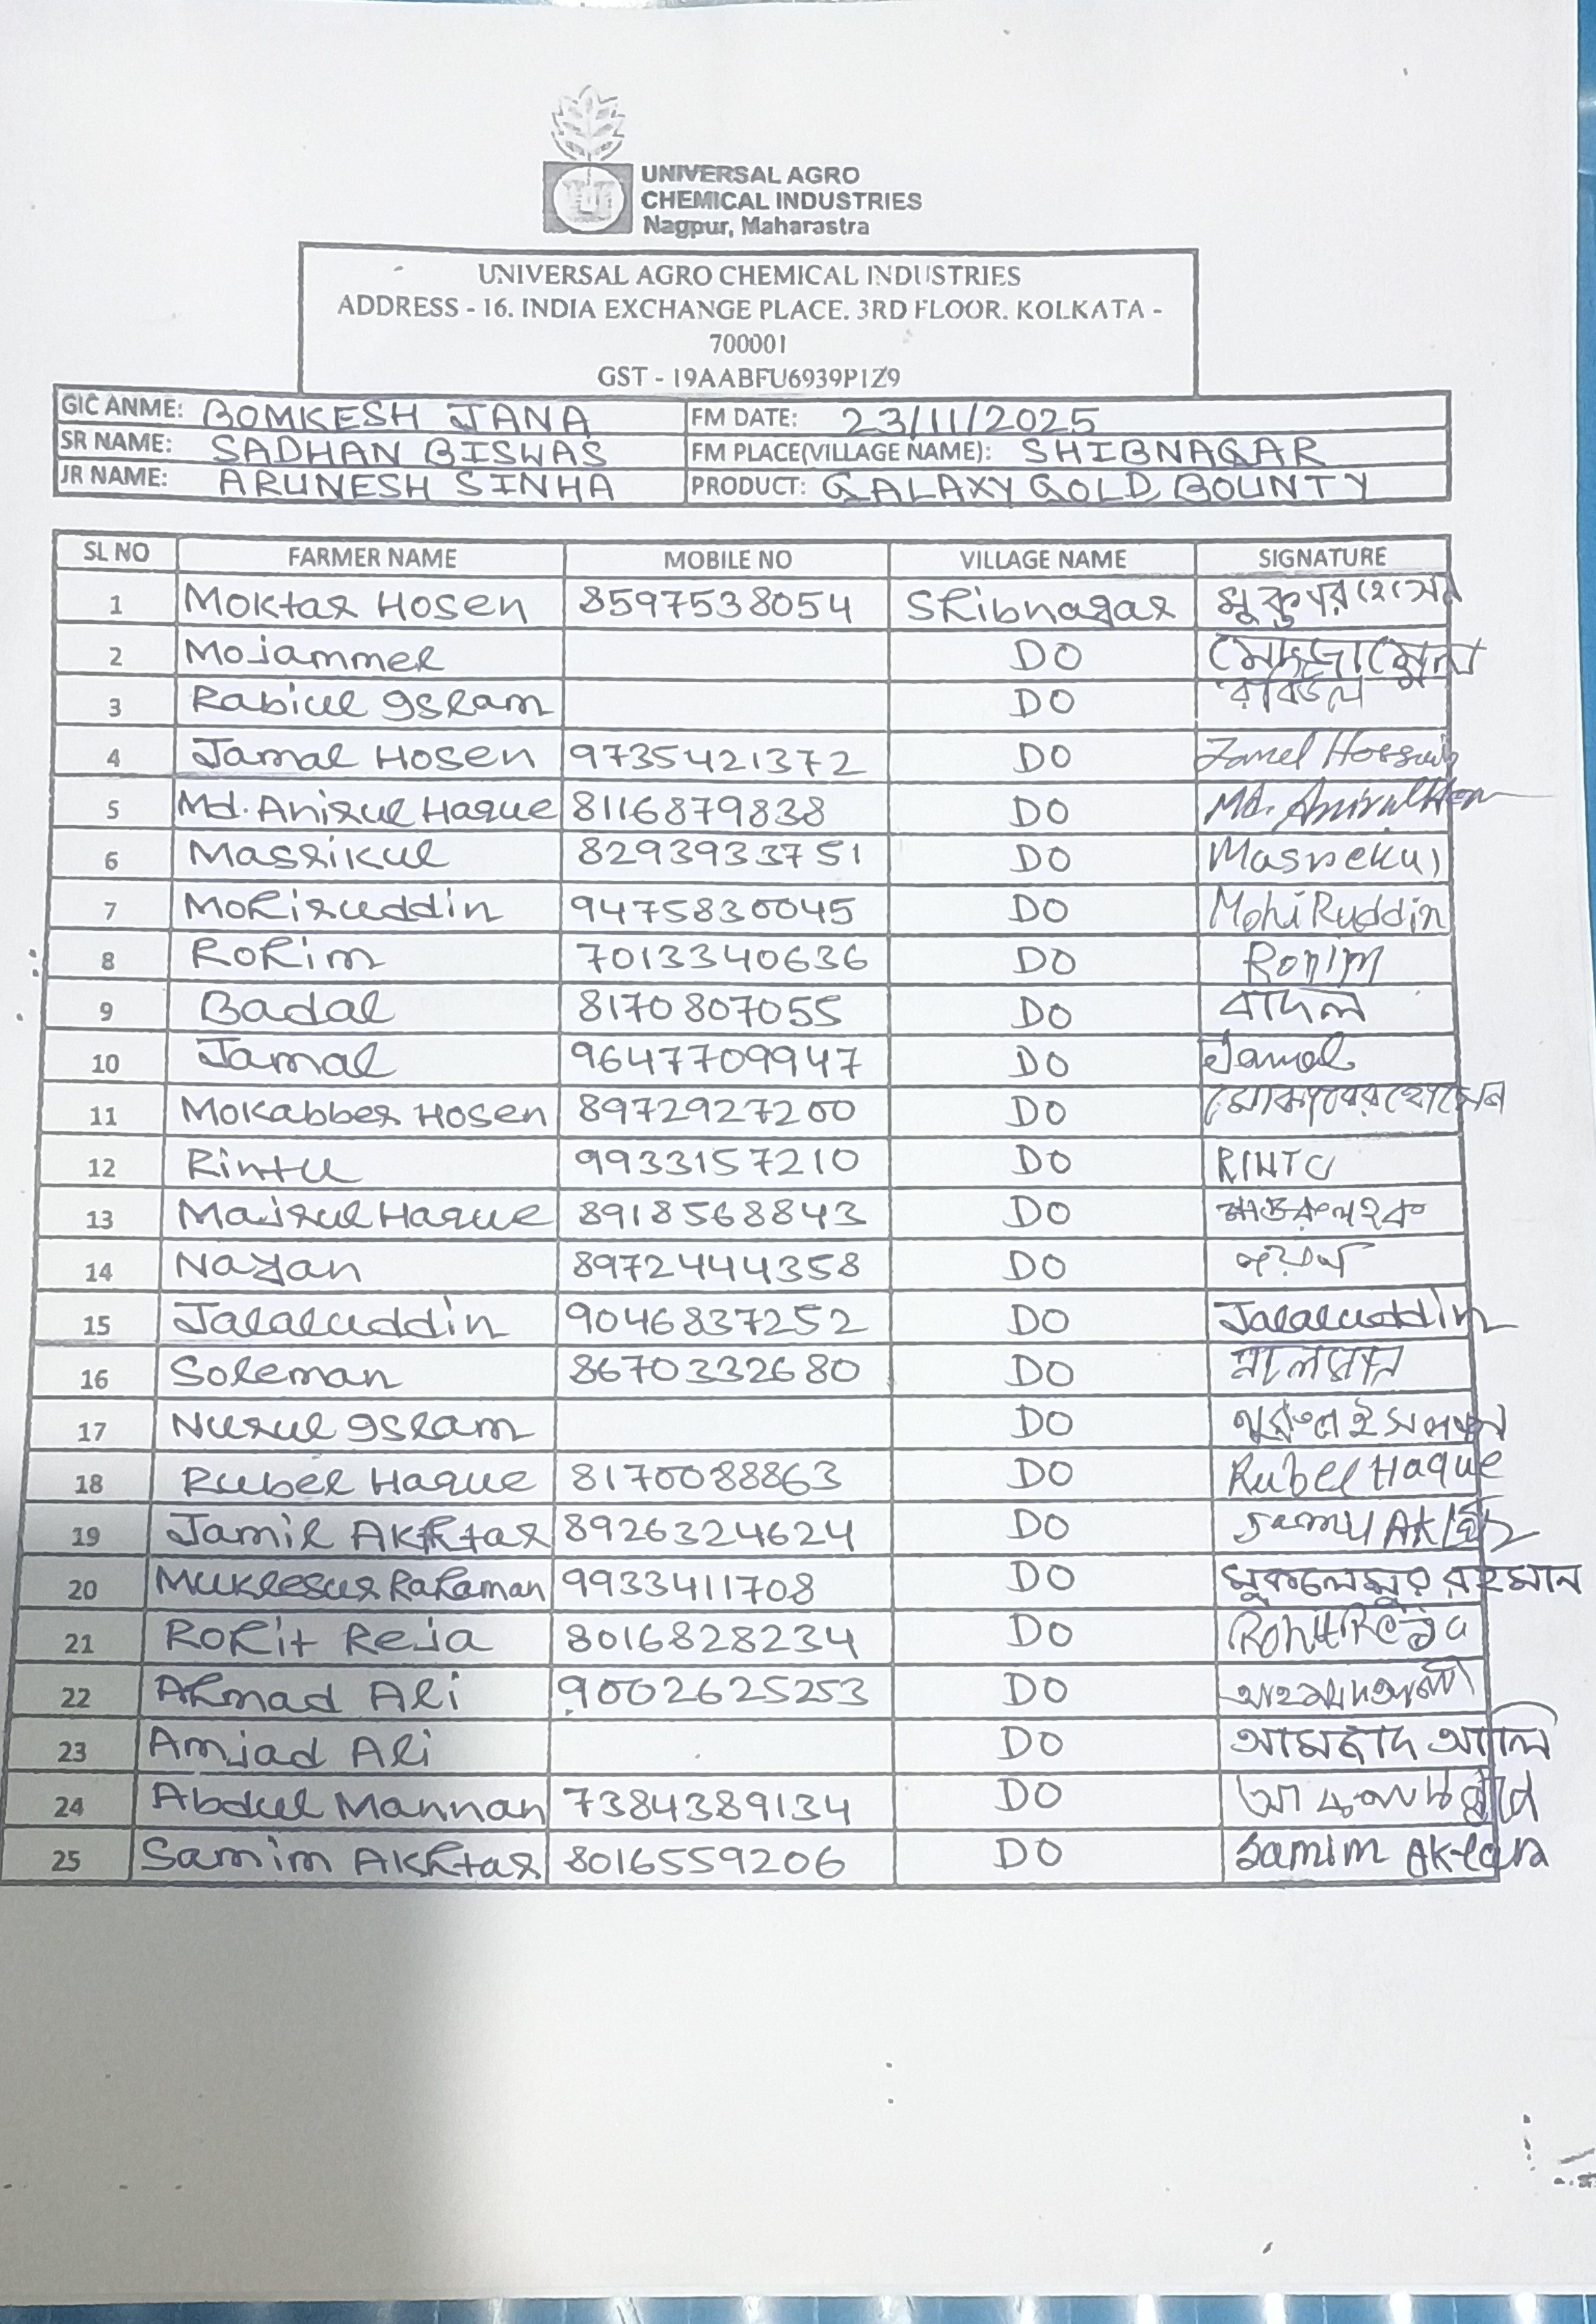 UNIVERSAL AGRO
CHEMICAL INDUSTRIES
Nagpur, Maharastra
UNIVERSAL AGRO CHEMICAL INDUSTRIES
ADDRESS - 16. INDIA EXCHANGE PLACE. 3RD FLOOR. KOLKATA -
700001
GST - 19AABFU6939P1Z9
GIC ANME: BOMKESH JANA FM DATE: 23/11/2025
SR NAME: SADHAN BISWAS FM PLACE(VILLAGE NAME): SHIBNAGAR
JR NAME: ARUNESH SINHA PRODUCT: GALAXY GOLD, BOUNTY
SL NO FARMER NAME MOBILE NO VILLAGE NAME SIGNATURE
1 Moktar Hosen 8597538054 Shibnagar
2 Mojammel DO
3 Rabiul Islam DO
4 Jamal Hosen 9735421372 DO
5 Md. Anirul Haque 8116879838 DO
6 Masrikul 8293933751 DO
7 Mohiruddin 9475830045 DO MohiRuddin
8 Rohim 7013340636 DO Rohim
9 Badal 8170807055 DO বাদল
10 Jamal 9647709947 DO Jamal
11 Mokabber Hosen 8972927200 DO
12 Rintu 9933157210 DO RINTU
13 Majrul Haque 8918568843 DO
14 Nayan 8972444358 DO
15 Jalaluddin 9046837252 DO Jalaluddin
16 Soleman 8670332680 DO
17 Nurul Islam DO
18 Rubel Haque 8170088863 DO Rubel Haque
19 Jamil Akhtar 8926324624 DO
20 Muklesur Rahaman 9933411708 DO মুকলেসুর রহমান
21 Rohit Reja 8016828234 DO Rohit Reja
22 Ahmad Ali 9002625253 DO
23 Amjad Ali DO আমজাদ আলি
24 Abdul Mannan 7384389134 DO
25 Samim Akhtar 8016559206 DO